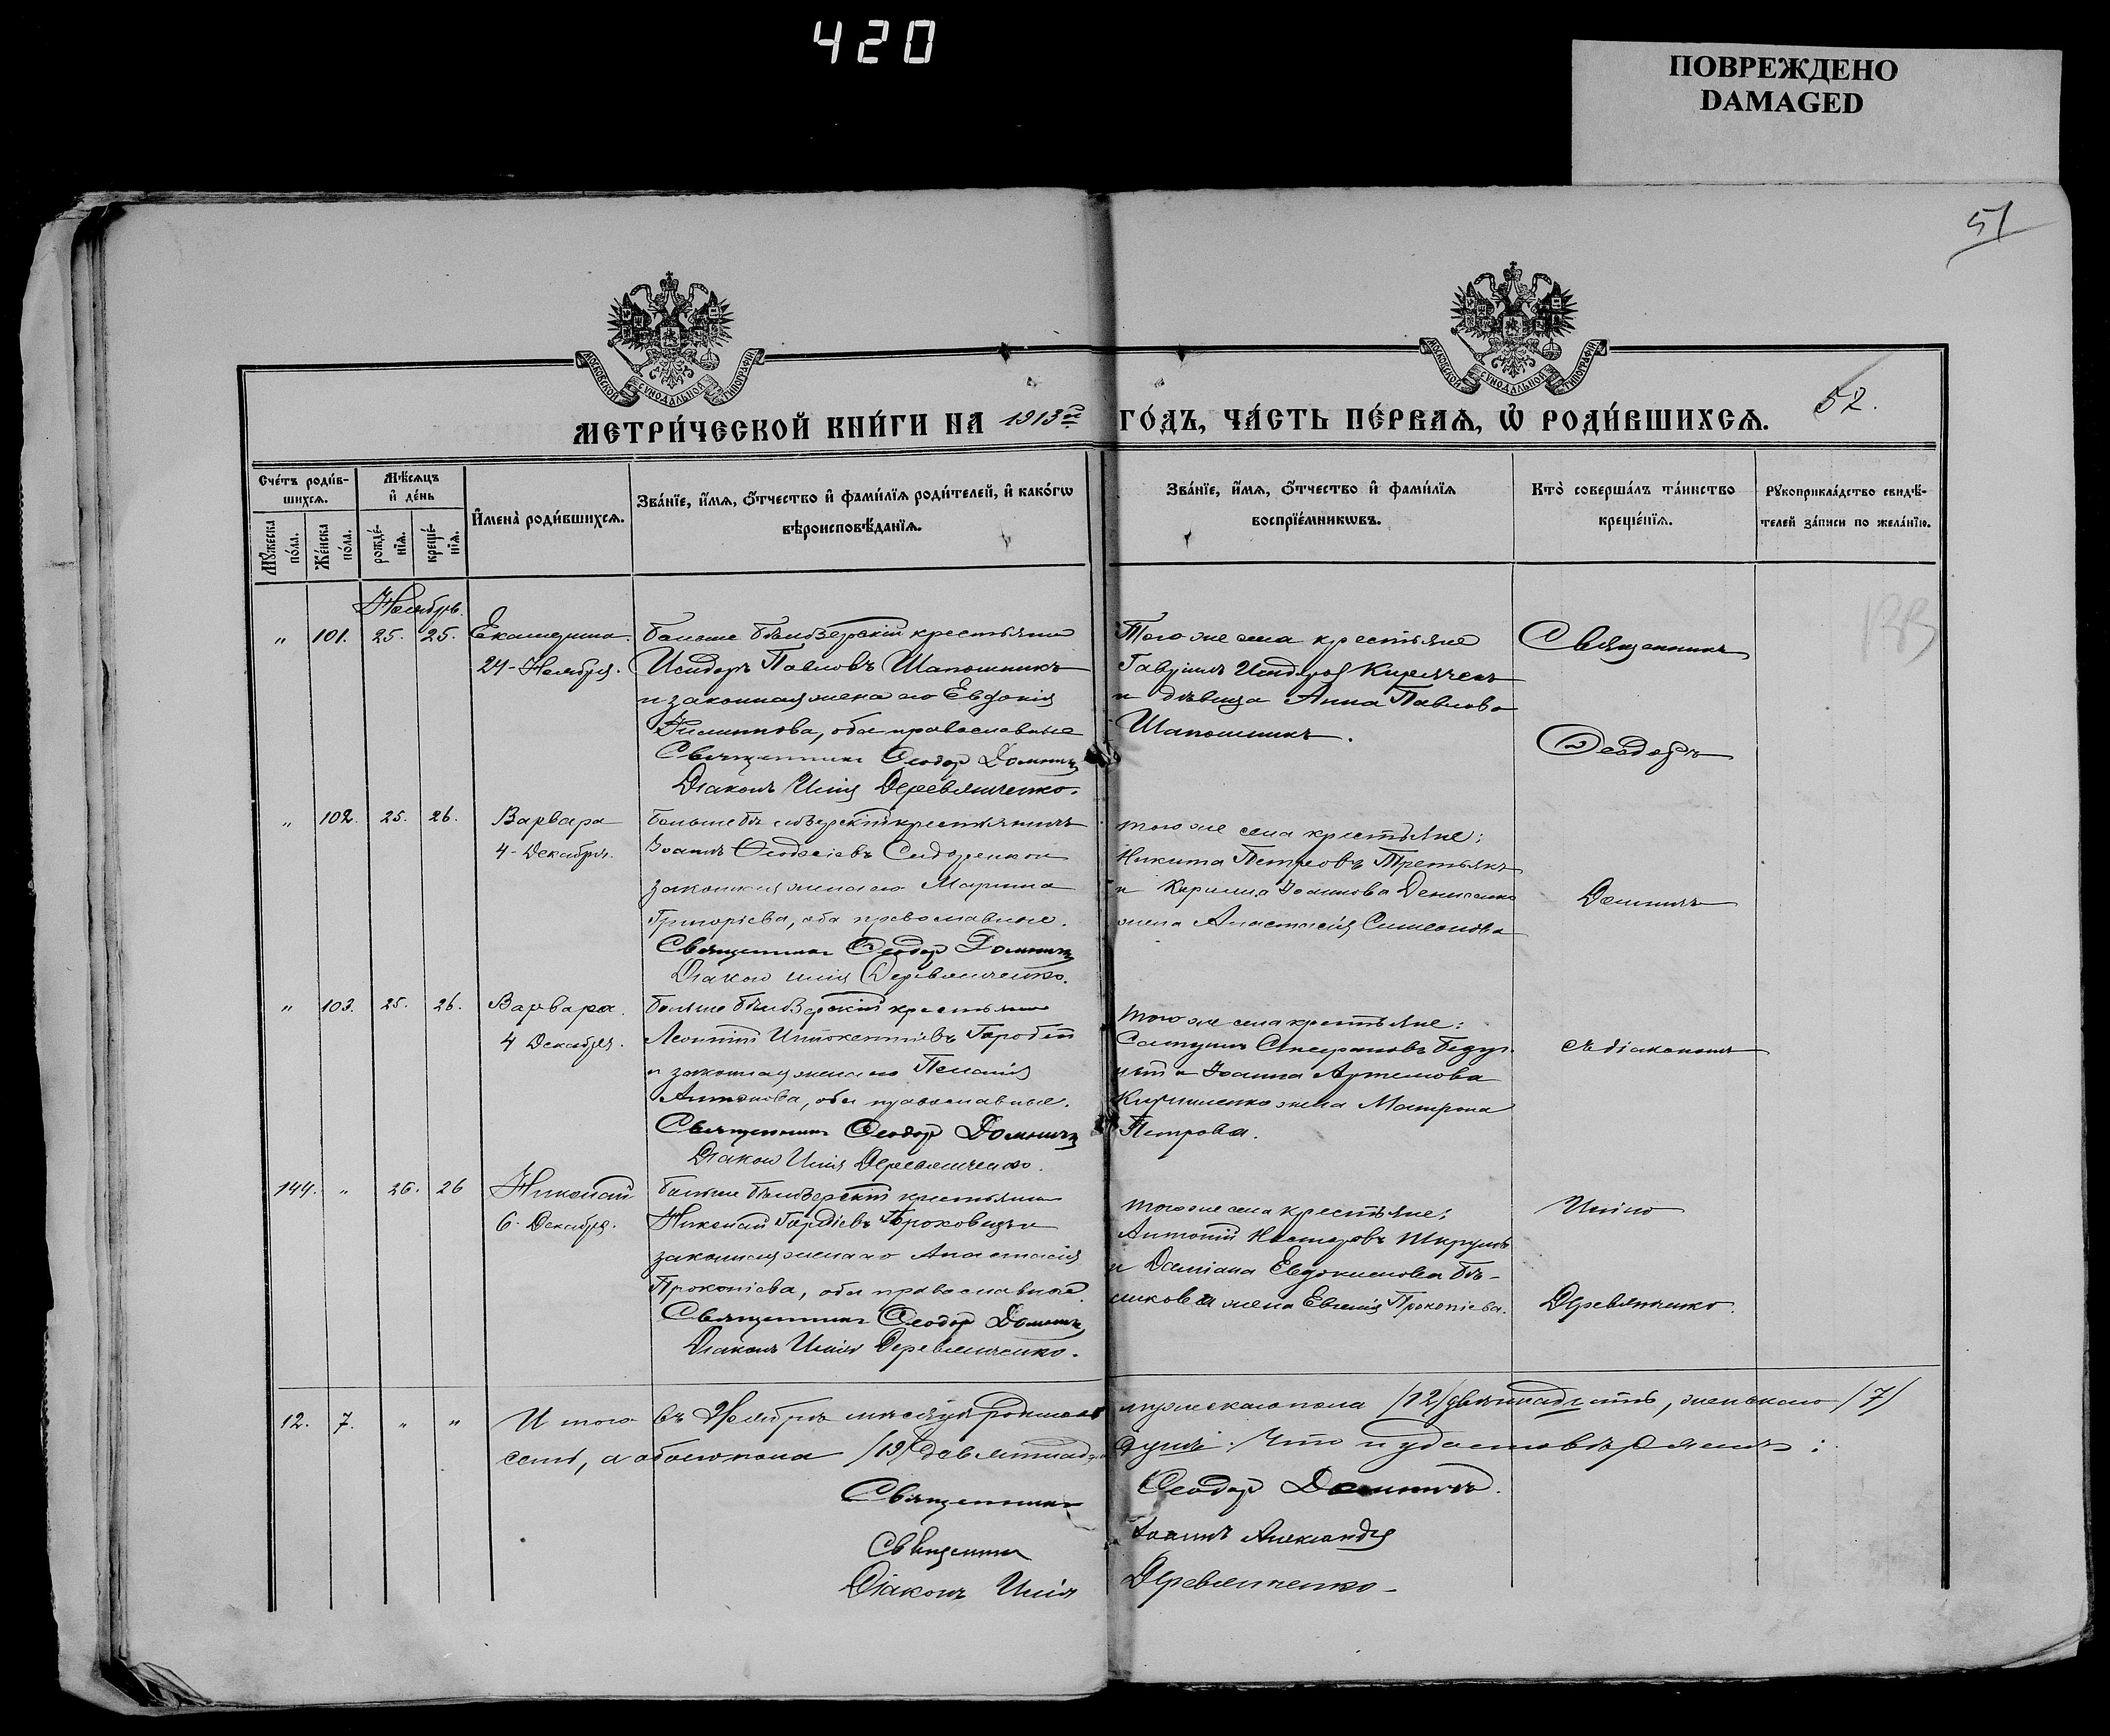 420
ПОВРЕЖДЕНО
DAMAGED
51
МОСКОВСКОЙ СѴНОДАЛЬНОЙ ТИПОГРАФІИ
МОСКОВСКОЙ СѴНОДАЛЬНОЙ ТИПОГРАФІИ
МЕТРИ́ЧЕСКОЙ КНИ́ГИ НА 1913й ГО́ДЪ, ЧА́СТЬ ПЕ́РВАѦ, Ѡ҆ РОДИ́ВШИХСѦ. 52.
Сче́тъ роди́в-
шихсѧ.
Мꙋ́жеска по́ла.
Же́нска по́ла.
Мѣ́сѧцъ
и҆ де́нь
рожде́-
нїѧ.
креще́-
нїѧ.
И҆мена̀ роди́вшихсѧ.
Зва́нїе, и҆́мѧ, ѻ҆́тчество и҆ фами́лїѧ роди́телей, и҆ како́гѡ
вѣроисповѣ́данїѧ.
Зва́нїе, и҆́мѧ, ѻ҆́тчество и҆ фами́лїѧ
воспрїе́мникѡвъ.
Кто̀ соверша́лъ та́инство
креще́нїѧ.
Рꙋкоприкла́дство свидѣ́-
телей за́писи по жела́нїю.
Ноябрь.
" 101. 25. 25. Екатерина
24 - Ноября.
Больше Бѣлозерскій крестьянин
Исидоръ Павловъ Шапошникъ
и законная жена его Евдокія
Филиппова, оба православные
Священникъ Ѳеодоръ Доминичъ
Діаконъ Илія Деревянченко.
Того же села крестьяне
Гавріилъ
и дѣвица Анна Павлова
Шапошникъ.
Священникъ
Ѳеодоръ
" 102. 25. 26. Варвара
4 - Декабря.
Больше Бѣлозерскій крестьянинъ
Іоаннъ Сидоренко и
законная жена его Марина
Григоріева, оба православные.
Священникъ Ѳеодоръ Доминичъ
Діаконъ Илія Деревянченко.
того же села крестьяне:
Никита Петровъ Третьякъ
и Іоаннова Денисенко
жена Анастасія Симеонова
Доминичъ
" 103. 25. 26. Варвара.
4 Декабря.
Больше Бѣлозерскій крестьянин
Леонтій Иннокентіевъ
и законная жена его Пелагія
Антонова, оба православные.
Священникъ Ѳеодоръ Доминичъ
Діаконъ Илія Деревянченко.
того же села крестьяне:
Стефановъ
и Іоанна Артемова
Кириленко жена Матрона
Петрова.
съ діакономъ
144. " 26. 26 Николай
6. Декабря.
Больше Бѣлозерскій крестьянин
Николай Гордіевъ и
законная жена его Анастасія
Прокопіева, оба православные.
Священникъ Ѳеодоръ Доминичъ
Діаконъ Илія Деревянченко.
того же села крестьяне:
Антоній Несторовъ Шкрумъ
и Даміана Евдокимова Бѣ-
ликова жена Евгенія Прокопіева.
Иліею
Деревянченко.
12. 7. " " Итого въ Ноябрѣ мѣсяцѣ родилось мужескаго пола /12/ двѣнадцать, женскаго /7/
семь, а обоего пола /19/ девятнадцать душъ. Что и удостовѣряемъ:
Священникъ Ѳеодоръ Доминичъ.
Священникъ Іоаннъ
Діаконъ Илія Деревянченко